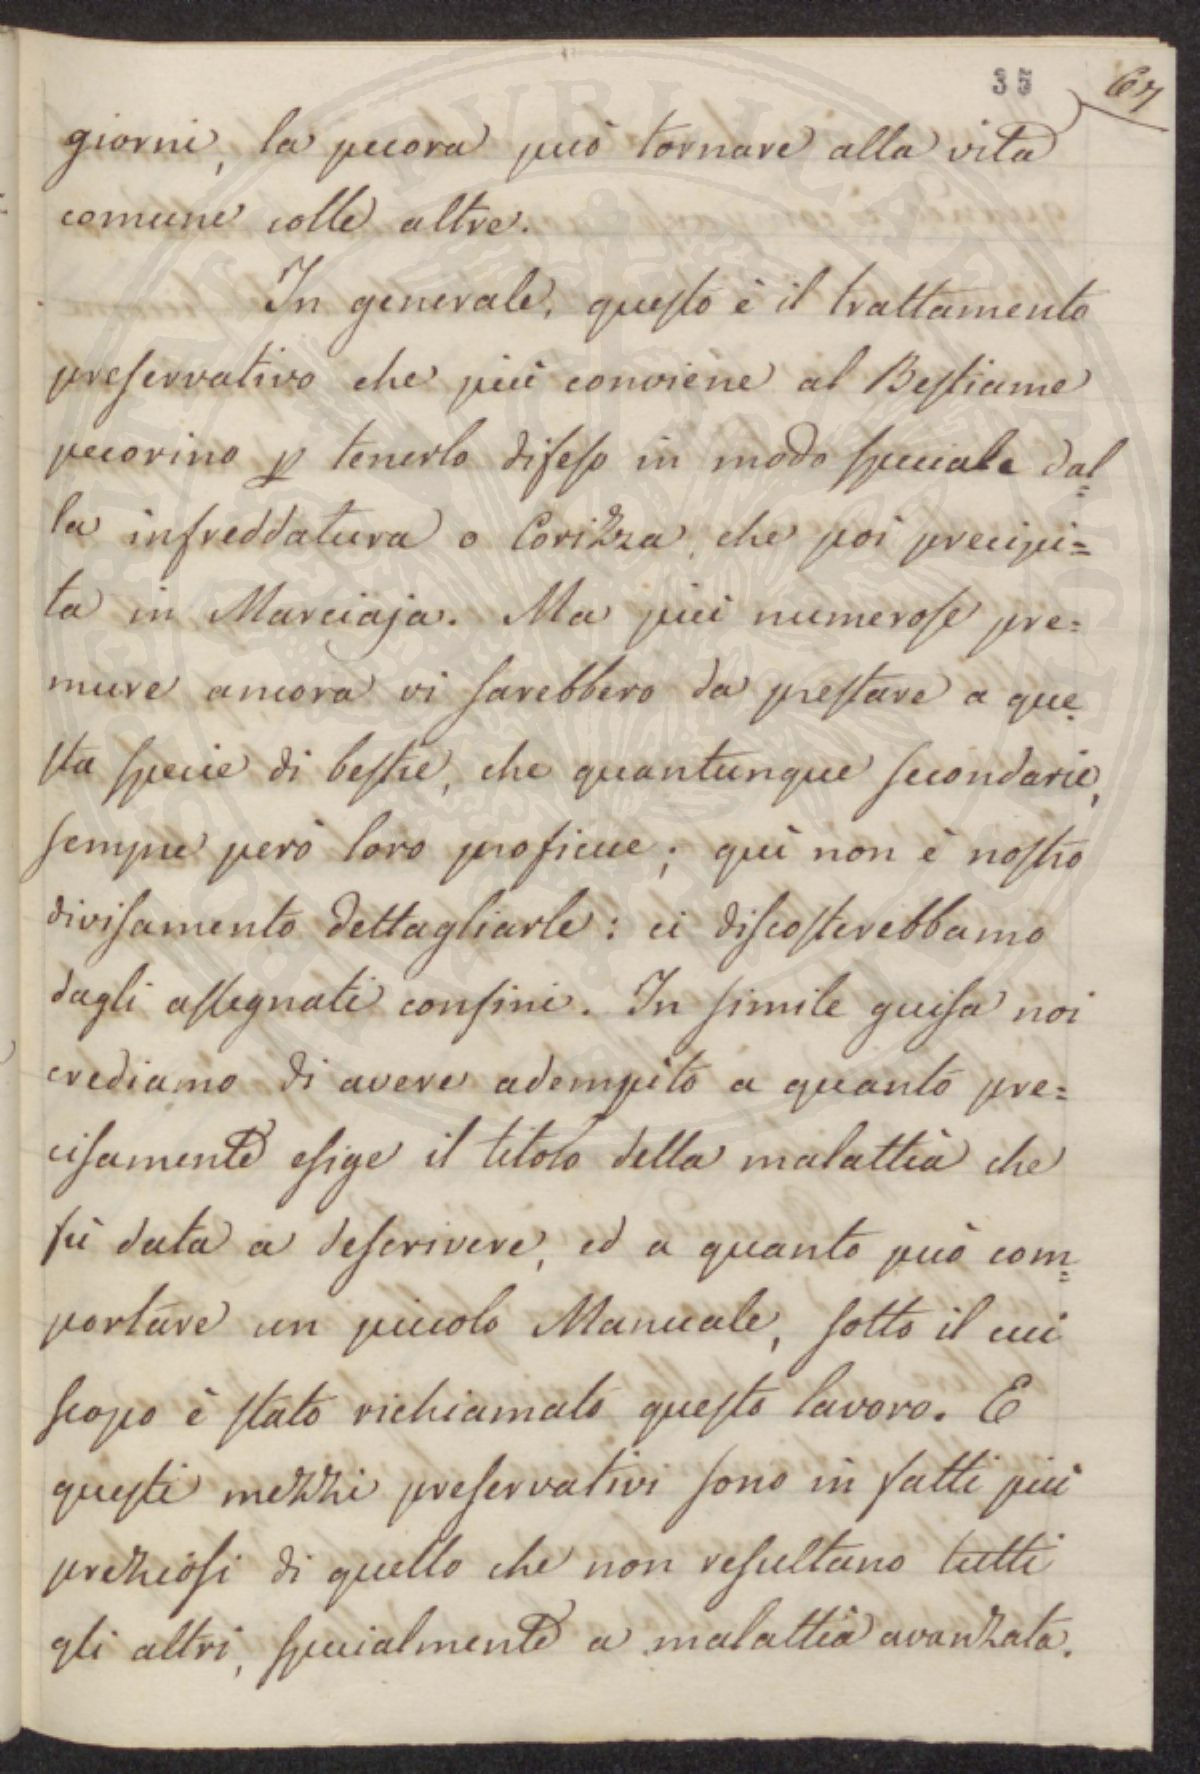 35 67
giorni, la pecora può tornare alla vita
comune colle altre.
In generale, questo è il trattamento
preservativo che più conviene al Bestiame
pecorino p tenerlo difeso in modo speciale dal=
la infreddatura o Corizza, che poi precipi=
ta in Marciaja. Ma più numerose pre=
mure ancora vi sarebbero da prestare a que=
sta specie di bestie, che quantunque secondarie,
sempre però loro proficue; quì non è nostro
divisamento dettagliarle: ci discosterebbamo
dagli assegnati confini. In simile guisa noi
crediamo di avere adempito a quanto pre=
cisamente esige il titolo della malattia che
fù data a descrivere, ed a quanto può com=
portare un piccolo Manuale, sotto il cui
scopo è stato richiamato questo lavoro. E
questi mezzi preservativi sono in fatti più
prezziosi di quello che non resultano tutti
gli altri, specialmente a malattia avanzata.